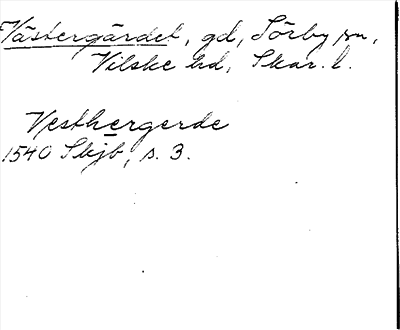 Västergärdet, gd, Sörby sn,
Vilske hd, Skar. l.
Vesthergerde
1540 Skjb, s. 3.